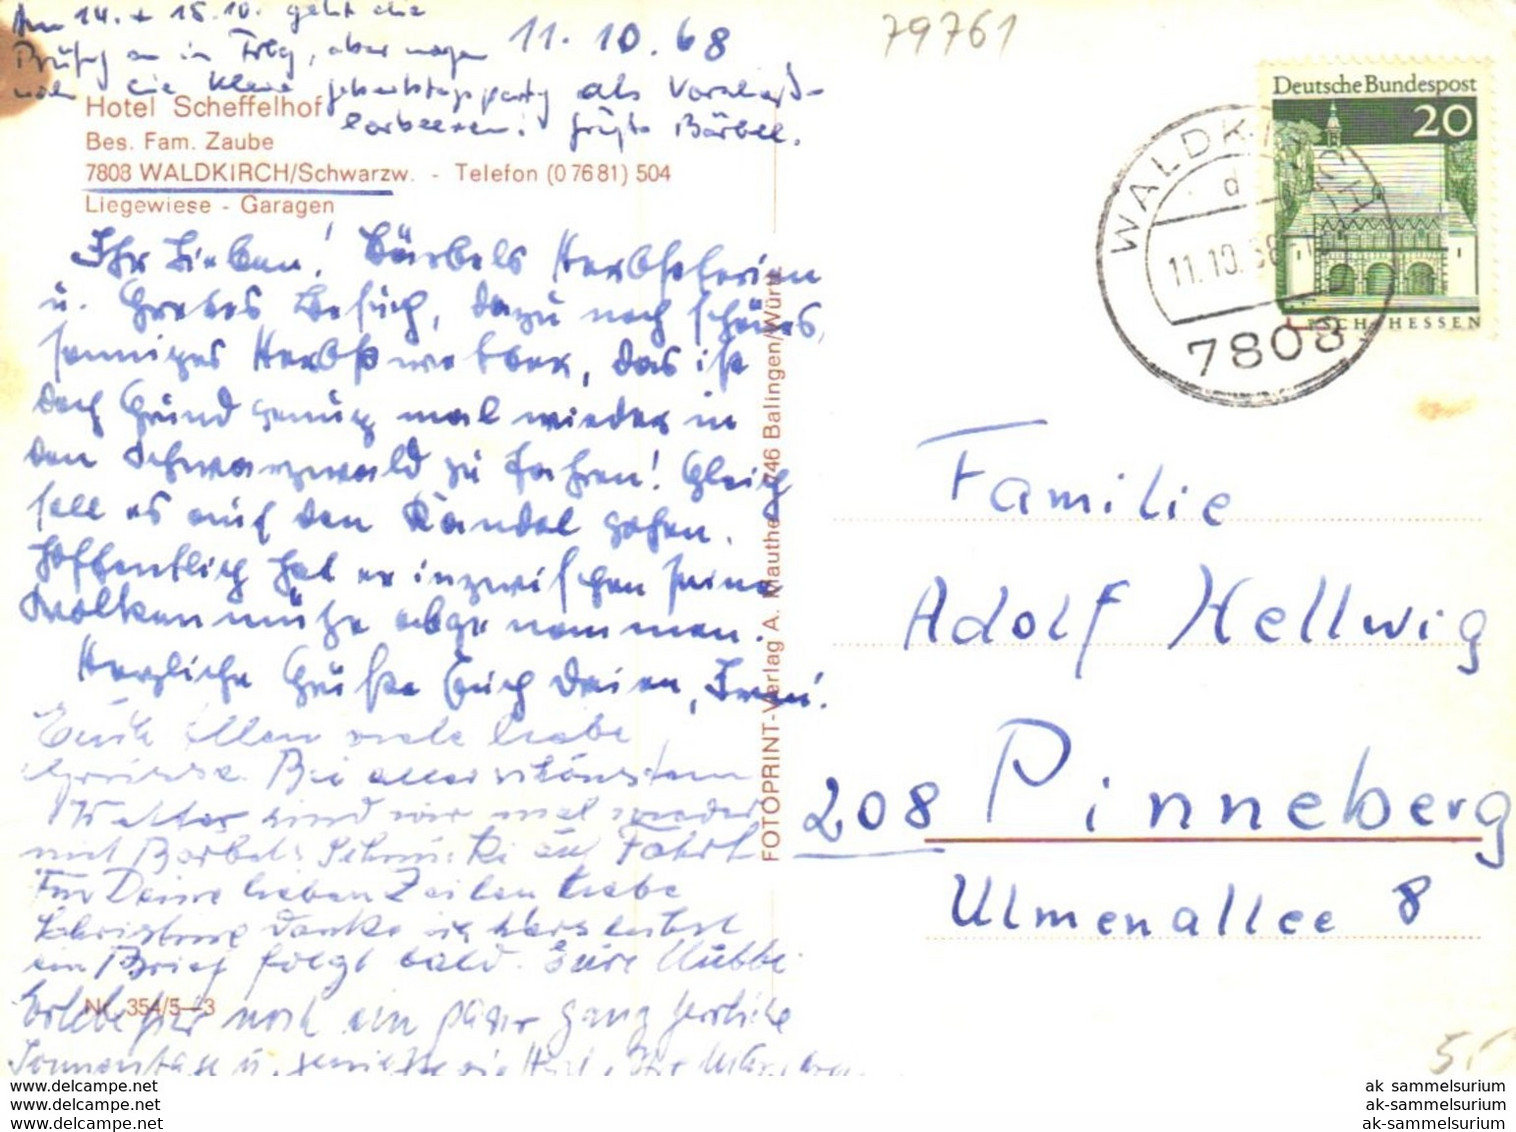 Am 14. + 15.10. geht die
Prüfg an in Frbg, aber wegen
eine kleine Geburtstagsparty als Vorschuß-
lorbeeren! Grüße Bärbel.
11.10.68
79761
Hotel Scheffelhof
Bes. Fam. Zaube
7808 WALDKIRCH/Schwarzw. - Telefon (0 76 81) 504
Liegewiese - Garagen
Ihr Lieben! Bärbels Herbstferien
u. Gretes Besuch, dazu noch schönes,
sonniges Herbstwetter, das ist
doch Grund genug mal wieder in
den Schwarzwald zu fahren! Gleich
soll es auf den Kandel gehen.
Hoffentlich hat er inzwischen seine
Wolkenmütze abgenommen.
Herzliche Grüße Euch Dreien,
Euch allen viele liebe
Grüsse. Bei allerschönstem
Wetter sind wir mal wieder
mit Bärbels auf Fahrt
Für Deine lieben Zeilen liebe
danke ich herzlichst
ein Brief folgt bald. Eure
Nr. 354/5—3
noch ein paar ganz herrliche
Sonnentage u.
FOTOPRINT-Verlag A. Mauthe, 746 Balingen/Württ.
Deutsche Bundespost
20
LORSCH/HESSEN
WALDKIRCH
d
11.10.68
7808
Familie
Adolf Hellwig
208 Pinneberg
Ulmenallee 8
ak sammelsurium
ak-sammelsurium
ak-sammelsurium
www.delcampe.net
www.delcampe.net
www.delcampe.net